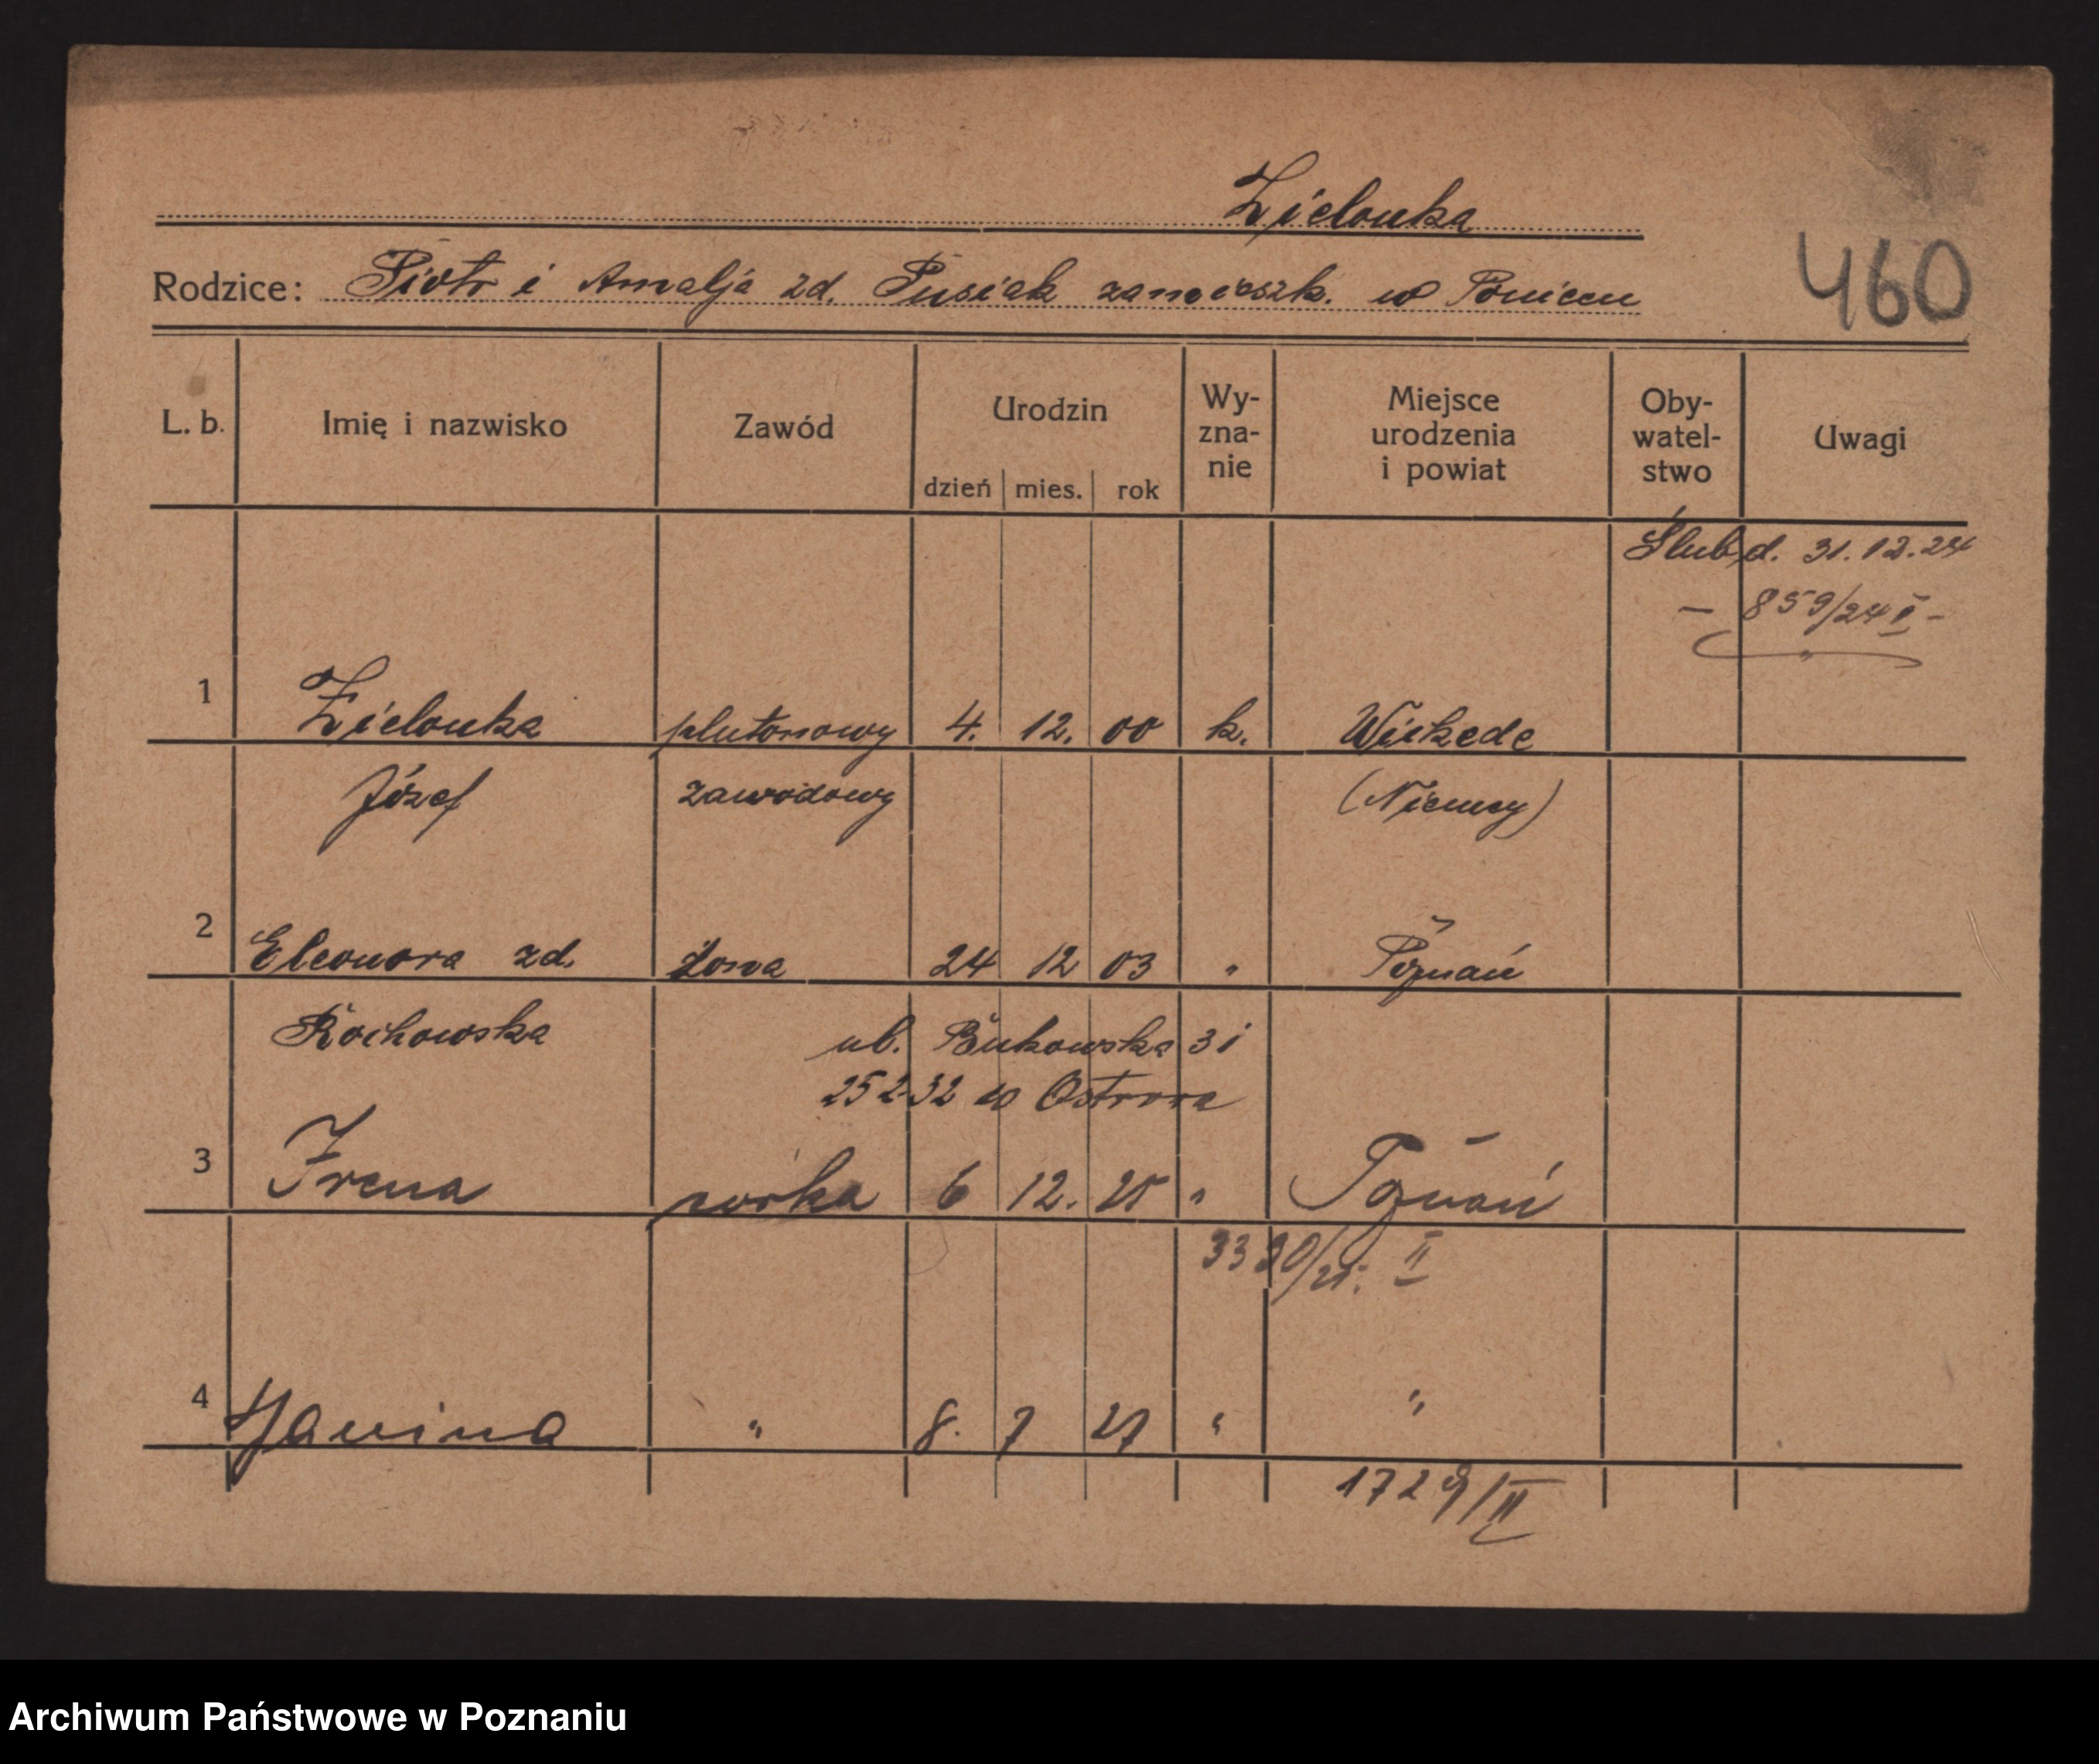 Zielonka
Rodzice: Piotr i Amalja zd. Pusiak zamieszk. w Poniecu
460
L. b. Imię i nazwisko Zawód Urodzin dzień mies. rok Wy-zna-nie Miejsce urodzenia i powiat Oby-watel-stwo Uwagi
Ślub d. 31.12.24
— 859/24 II -
1 Zielonka plutonowy 4. 12. 00 k. Wickede
Józef zawodowy (Niemcy)
2 Eleonora zd. żona 24 12 03 " Poznań
Rochowska ul. Bukowska 31
25 2 32 w Ostrora
3 Irena córka 6 12. 25 " Poznań
3390/25. II
4 Janina " 8. 7 27 " "
1729/II
Archiwum Państwowe w Poznaniu